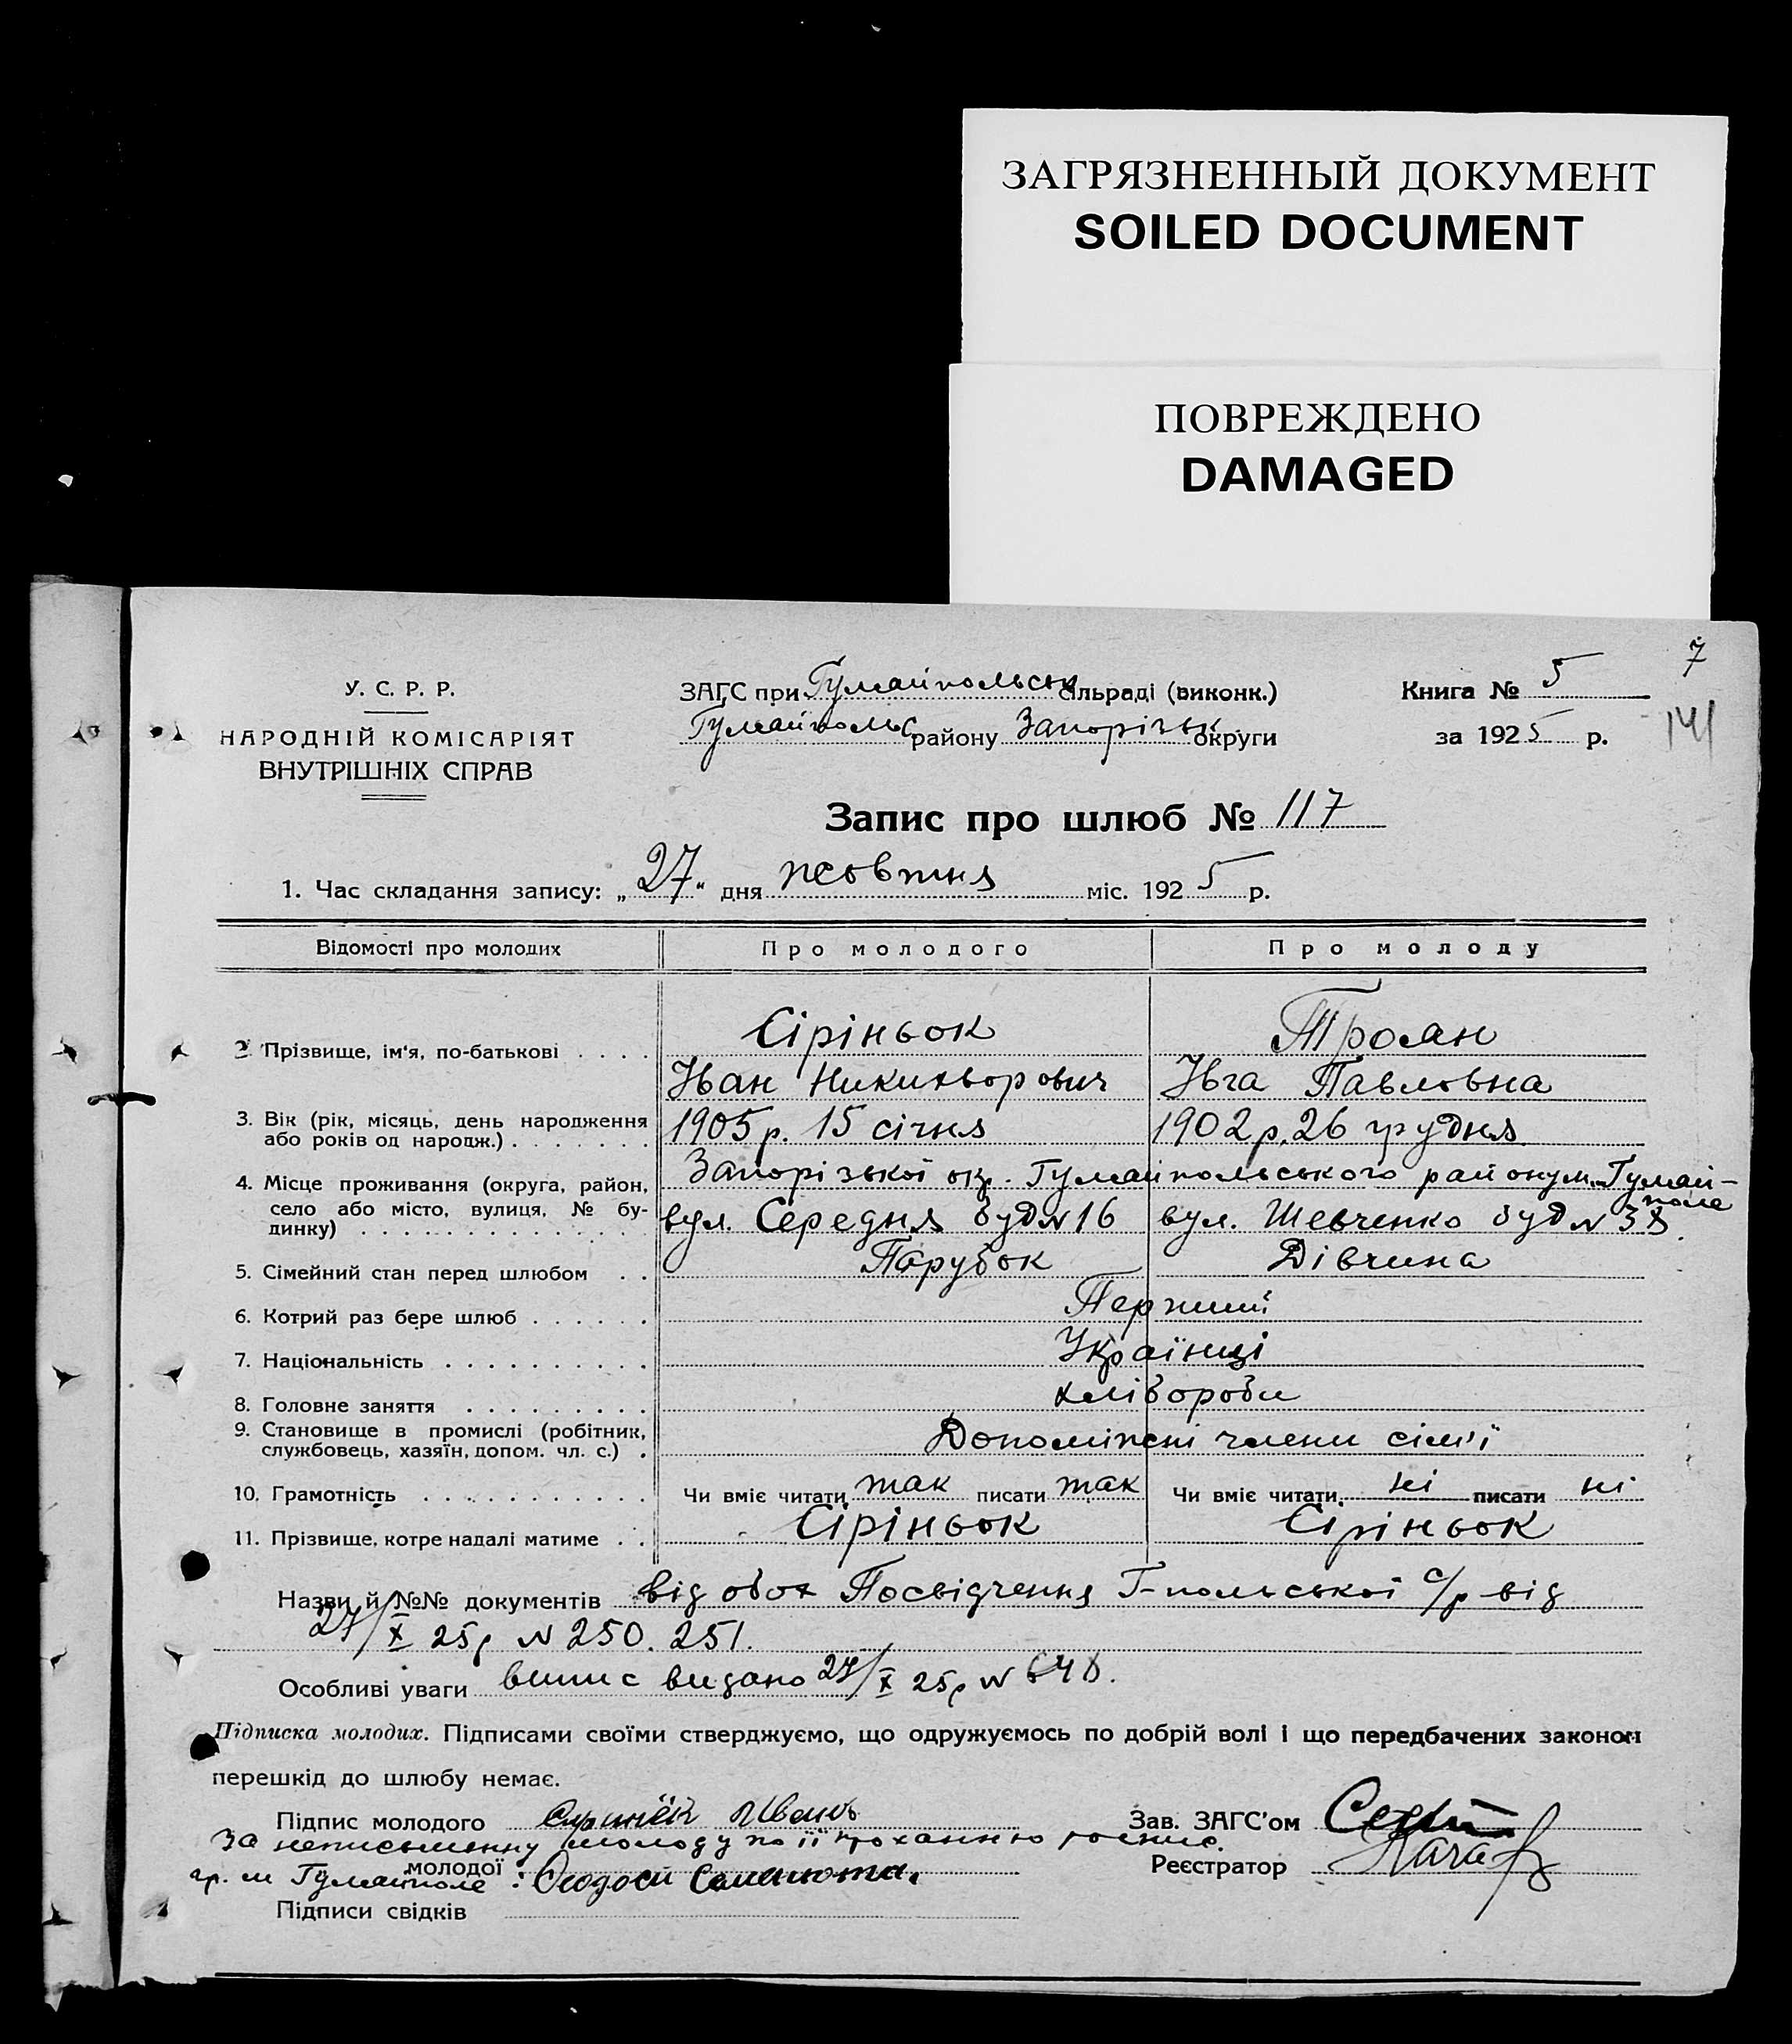 ЗАГРЯЗНЕННЫЙ ДОКУМЕНТ
SOILED DOCUMENT
ПОВРЕЖДЕНО
DAMAGED
7
141
У. С. Р. Р.
НАРОДНІЙ КОМІСАРІЯТ
ВНУТРІШНІХ СПРАВ
ЗАГС при Гумайпольськ сільраді (виконк.)
Гумайпольс району Запорізьк округи
Книга № 5
за 1925 р.
Запис про шлюб № 117
1. Час складання запису: „27" дня жовтня міс. 1925 р.
Відомості про молодих Про молодого Про молоду
2. Прізвище, ім'я, по-батькові . . . . Сіріньок Троян
Іван Никихворович Івга Павловна
3. Вік (рік, місяць, день народження або років од народж.) 1905 р. 15 січня 1902 р. 26 грудня
4. Місце проживання (округа, район, село або місто, вулиця, № будинку) Запорізької окр. Гумайпольського району м. Гумай-
поле
вул. Середня буд № 16 вул. Шевченко буд № 38.
5. Сімейний стан перед шлюбом . . Парубок Дівчина
6. Котрий раз бере шлюб . . . . . . Перший
7. Національність . . . . . . . . . . Українці
8. Головне заняття . . . . . . . . . хлібороби
9. Становище в промислі (робітник, службовець, хазяїн, допом. чл. с.) . Допоміжні члени сім'ї
10. Грамотність . . . . . . . . . . . Чи вміє читати так писати так Чи вміє читати ні писати ні
11. Прізвище, котре надалі матиме . . Сіріньок Сіріньок
Назви й №№ документів від обох Посвідчення Г-польської с/р від
27/X 25р № 250. 251.
Особливі уваги випис видано 27/X 25р №
Підписка молодих. Підписами своїми стверджуємо, що одружуємось по добрій волі і що передбачених законом
перешкід до шлюбу немає.
Підпис молодого Иванъ
За неписьменну молоду по її проханню
молодої гр. м Гумайполе:
Підписи свідків
Зав. ЗАГС'ом
Реєстратор